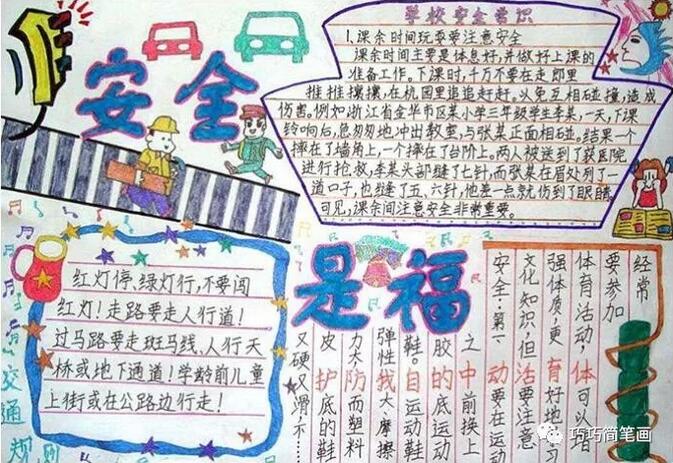 安全
学校安全常识
1、课余时间玩耍要注意安全
课余时间主要是休息好,并做好上课的
准备工作。下课时,千万不要在走郎里
推推攘攘,在机园里追追赶赶。以免互相碰撞,造成
伤害。例如浙江省金华市区某小学三年级学生李某,一天,下课
铃响后,急匆匆地冲出教室,与张某正面相碰。结果一个
摔在了墙角上,一个摔在了台阶上。两人被送到了获医院
进行抢救,李某头部缝了七针,而张某在眉处列了一
道口子,也缝了五、六针,他差一点就伤到了眼睛。
可见,课余间注意安全非常重要。
是福
红灯停、绿灯行,不要闯
红灯!走路要走人行道!
过马路要走斑马线、人行天
桥或地下通道!学龄前儿童
上街或在公路边行走!
交通规则
经常
要参加
体育活动,体可以者
强体质,更育好地习
文化知识,但活要注意
安全:第一动要在运动
之中前换上
胶的底运动
鞋。自运动鞋
弹性我大、摩擦
力大防而塑料
皮护底的鞋
又硬又滑不
巧巧简笔画